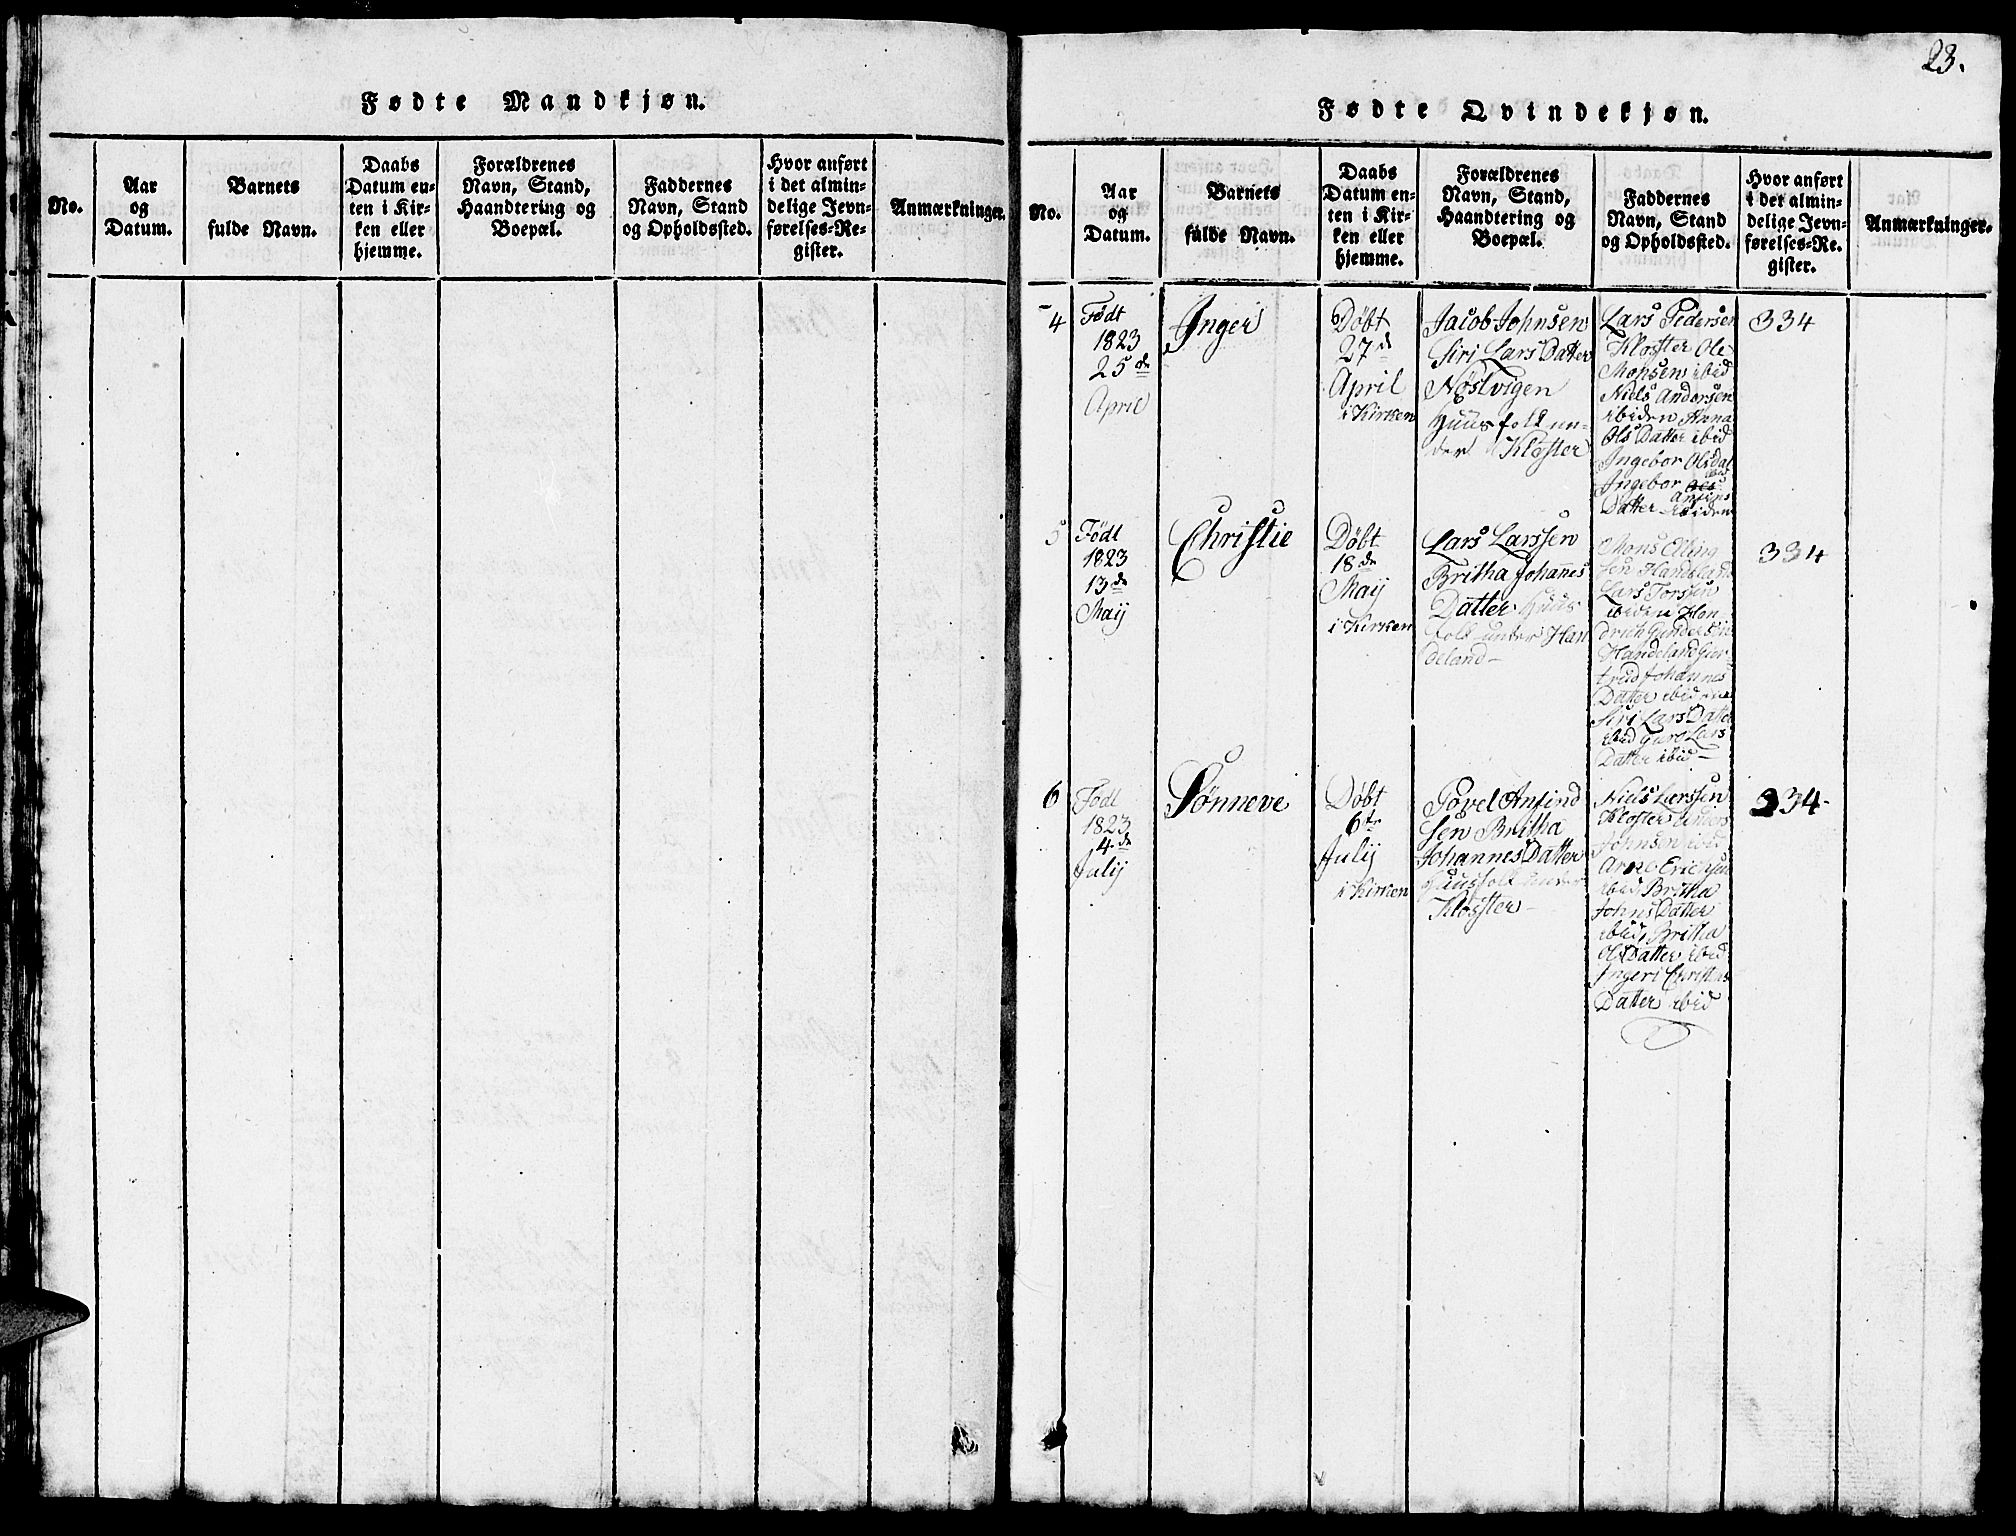 Fødte Mandkjøn.
No.
Aar
og
Datum.
Barnets
fulde Navn.
Daabs
Datum en-
ten i Kir-
ken eller
hjemme.
Forældrenes
Navn, Stand,
Haandtering og
Boepæl.
Faddernes
Navn, Stand
og Opholdssted.
Hvor anført
i det almin-
delige Jevn-
førelses-Re-
gister.
Anmærkninger.
23.
Fødte Qvindekjøn.
No.
Aar
og
Datum.
Barnets
fulde Navn.
Daabs
Datum en-
ten i Kir-
ken eller
hjemme.
Forældrenes
Navn, Stand,
Haandtering og
Boepæl.
Faddernes
Navn, Stand
og Opholdssted.
Hvor anført
i det almin-
delige Jevn-
førelses-Re-
gister.
Anmærkninger.
4
Født
1823
25de
April
Inger
Døbt
27d
April
i Kirken
Jacob Johnsen
Siri Lars Datter
Nøstvigen
Huusfolk un-
der Kloster
Lars Pedersen
Kloster Ole
Monsen ibid
Niels Andersen
ibiden Anna
Ols Datter ibid
Ingebor Olsdat
ibid
Ingebor
Anfins
Datter ibiden
334
5
Født
1823
13de
Maij
Christie
Døbt
18de
Maij
i Kirken
Lars Larssen
Britha Johannes
Datter Huus
folk under Han
deland-
Mons Elling
sen Handeland
Lars Torssen
ibiden Hen-
drich Gundersen
Handeland Gier
trud Johannes
Datter ibiden
Siri Lars Datter
ibid Guro Lars
Datter ibid-
334
6
Født
1823
4de
Julij
Sønneve
Døbt
6te
Julij
i Kirken
Povel Anfind
sen Britha
Johannes Datter
Huusfolk under
Kloster-
Niels Larssen
Kloster Anders
Johnsen ibid
Arne Erichsen
ibid Britha
Johns Datter
ibid, Britha
Ols Datter ibid
Ingeri Christens
Datter ibid
334-